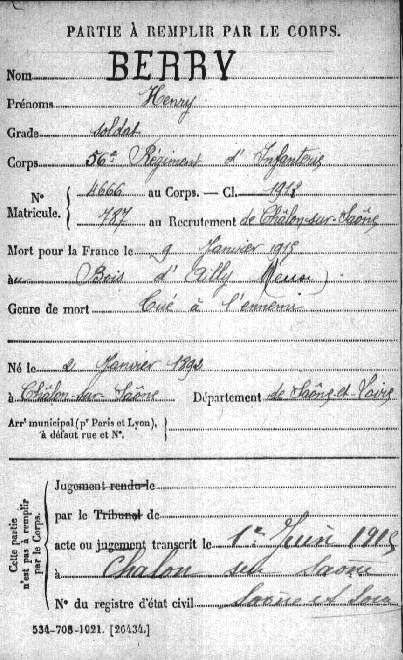 PARTIE À REMPLIR PAR LE CORPS.
Nom BERRY
Prénoms Henry
Grade soldat
Corps 56e Régiment d'Infanterie
N° Matricule. { 4666 au Corps. — Cl. 1912
787 au Recrutement de Châlon-sur-Saône
Mort pour la France le 9 Janvier 1915
au Bois d'Ailly (Meuse)
Genre de mort Tué à l'ennemi
Né le 2 Janvier 1892
à Châlon-sur-Saône Département de Saône-et-Loire
Arrt municipal (pr Paris et Lyon),
à défaut rue et N°.
Cette partie
n'est pas à remplir
par le Corps.
Jugement rendu le
par le Tribunal de
acte ou jugement transcrit le 1er Juin 1915
à Chalon sur Saône
N° du registre d'état civil Saône et Loire
534-708-1921. [26434.]